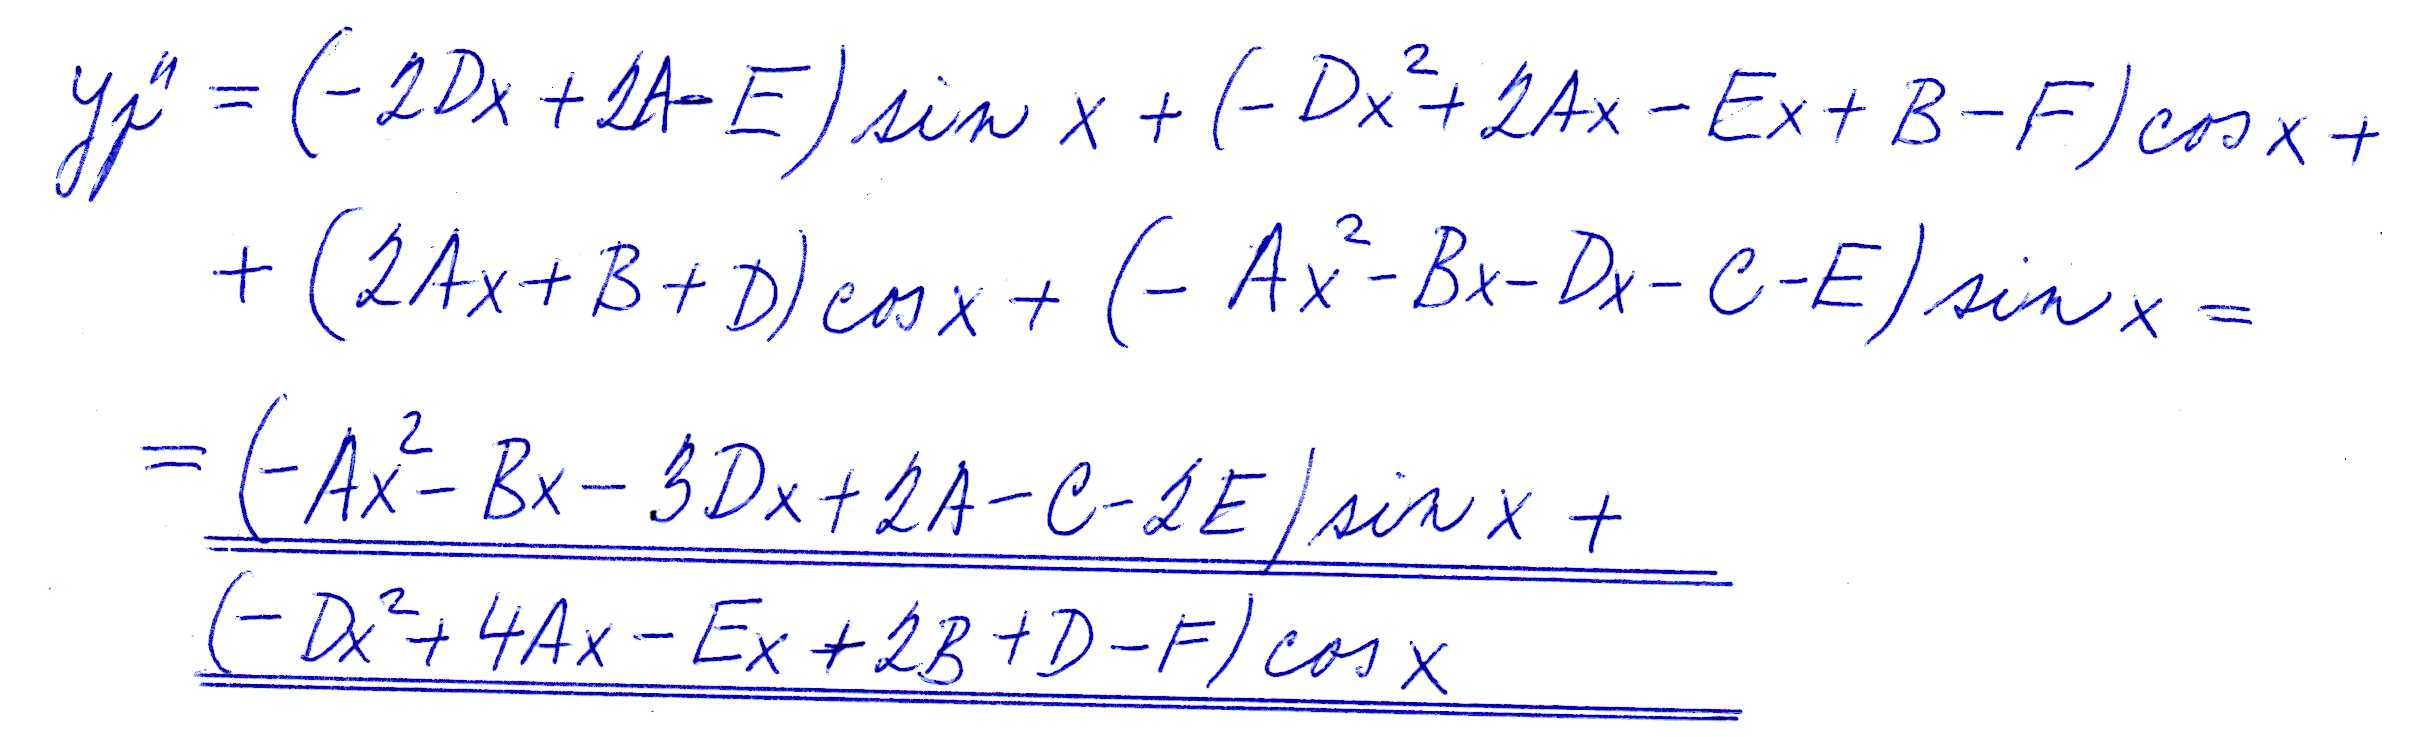 yp" = (-2Dx + 2A - E) sin x + (-Dx² + 2Ax - Ex + B - F) cos x +
+ (2Ax + B + D) cos x + (- Ax² - Bx - Dx - C - E) sin x =
= (-Ax² - Bx - 3Dx + 2A - C - 2E) sin x +
(-Dx² + 4Ax - Ex + 2B + D - F) cos x